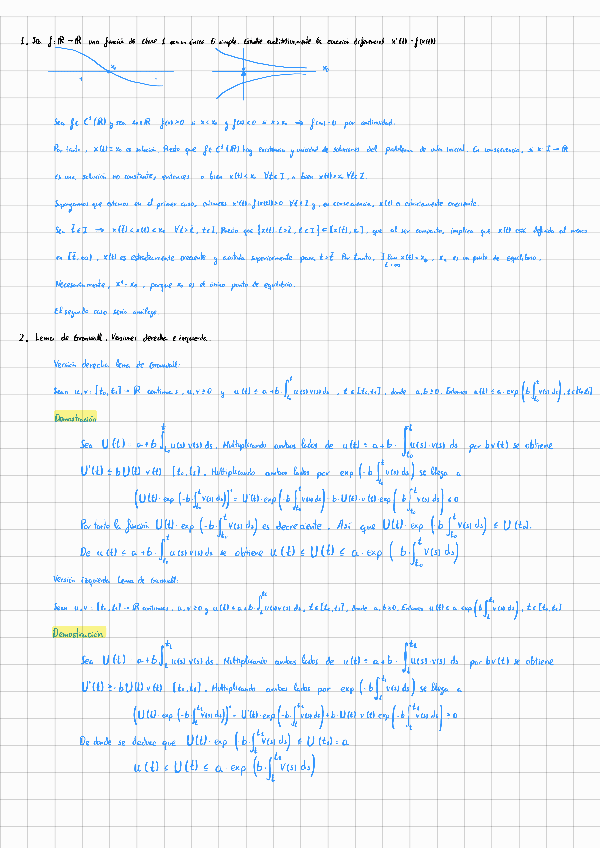 1. Sea f: ℝ → ℝ una función de clase 1 Estudie cualitativamente la ecuación diferencial x'(t) = f(x(t))
x₀
x₀
Sea f ∈ C¹(ℝ) y sea x₀ ∈ ℝ f(x) > 0 si x < x₀ y f(x) < 0 si x > x₀ ⇒ f(x₀) = 0 por continuidad.
Por tanto, x(t) = x₀ es solución. Puesto que f ∈ C¹(ℝ) hay existencia y unicidad de soluciones del problema de valor inicial. En consecuencia, si x: I → ℝ
es una solución no constante, entonces o bien x(t) < x₀ ∀t ∈ I, o bien x(t) > x₀ ∀t ∈ I.
Supongamos que estamos en el primer caso, entonces x'(t) = f(x(t)) > 0 ∀t ∈ I y, en consecuencia, x(t) es estrictamente creciente.
Sea t̄ ∈ I ⇒ x(t̄) < x(t) < x₀ ∀t > t̄, t ∈ I. Puesto que {x(t): t > t̄, t ∈ I} ⊂ [x(t̄), x₀], que al ser compacto, implica que x(t) está definida al menos
en [t̄, ∞), x(t) es estrictamente creciente y acotada superiormente para t > t̄. Por tanto, ∃ lim x(t) = x*, x* es un punto de equilibrio.
t→∞
Necesariamente, x* = x₀, porque x₀ es el único punto de equilibrio.
El segundo caso sería análogo
2. Lema de Gronwall. Versiones derecha e izquierda.
Versión derecha lema de Gronwall:
Sean u, v: [t₀, t₁] → ℝ continuas, u, v ≥ 0 y u(t) ≤ a + b ∫_{t₀}^{t} u(s) v(s) ds, t ∈ [t₀, t₁], donde a, b ≥ 0. Entonces u(t) ≤ a · exp(b ∫_{t₀}^{t} v(s) ds), t ∈ [t₀, t₁]
Demostración
Sea U(t) = a + b ∫_{t₀}^{t} u(s) v(s) ds. Multiplicando ambos lados de u(t) = a + b · ∫_{t₀}^{t} u(s) · v(s) ds por b v(t) se obtiene
U'(t) ≤ b U(t) v(t) [t₀, t₁]. Multiplicando ambos lados por exp(-b ∫_{t₀}^{t} v(s) ds) se llega a
(U(t) · exp(-b · ∫_{t₀}^{t} v(s) ds))' = U'(t) · exp(-b ∫_{t₀}^{t} v(s) ds) - b · U(t) · v(t) exp(-b ∫_{t₀}^{t} v(s) ds) ≤ 0
Por tanto la función U(t) · exp(-b · ∫_{t₀}^{t} v(s) ds) es decreciente. Así que U(t) · exp(-b ∫_{t₀}^{t} v(s) ds) ≤ U(t₀).
De u(t) ≤ a + b · ∫_{t₀}^{t} u(s) v(s) ds se obtiene u(t) ≤ U(t) ≤ a · exp(b · ∫_{t₀}^{t} v(s) ds)
Versión izquierda lema de Gronwall:
Sean u, v: [t₀, t₁] → ℝ continuas, u, v ≥ 0 y u(t) ≤ a + b · ∫_{t}^{t₁} u(s) v(s) ds, t ∈ [t₀, t₁], donde a, b ≥ 0. Entonces u(t) ≤ a · exp(b ∫_{t}^{t₁} v(s) ds), t ∈ [t₀, t₁]
Demostración
Sea U(t) = a + b ∫_{t}^{t₁} u(s) v(s) ds. Multiplicando ambos lados de u(t) = a + b · ∫_{t}^{t₁} u(s) · v(s) ds por b v(t) se obtiene
U'(t) ≥ -b U(t) v(t) [t₀, t₁]. Multiplicando ambos lados por exp(-b ∫_{t}^{t₁} v(s) ds) se llega a
(U(t) · exp(-b · ∫_{t}^{t₁} v(s) ds))' = U'(t) · exp(-b ∫_{t}^{t₁} v(s) ds) + b · U(t) · v(t) exp(-b ∫_{t}^{t₁} v(s) ds) ≥ 0
De donde se deduce que U(t) · exp(-b · ∫_{t}^{t₁} v(s) ds) ≤ U(t₁) = a
u(t) ≤ U(t) ≤ a exp(b · ∫_{t}^{t₁} v(s) ds)